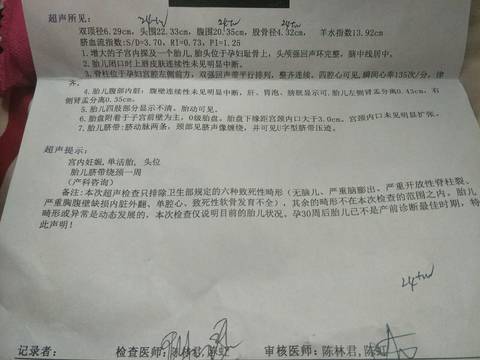 超声所见：
24+w 24+w 24+w
双顶径6.29cm，头围22.33cm，腹围20.35cm，股骨径4.32cm，羊水指数13.92cm
脐血流指数：S/D=3.70，RI=0.73，PI=1.25
1.增大的子宫内探及一个胎儿，胎头位于孕妇耻骨上，头颅强回声环完整，脑中线居中。
2.胎儿闭口时上唇皮肤连续性未见明显中断。
3.脊柱位于孕妇宫腔左侧前方，双强回声带平行排列，整齐连续。四腔心可见，瞬间心率135次/分，律齐。
4.胎儿腹部内脏：腹壁连续性未见明显中断，肝、胃泡、膀胱显示可见，胎儿左侧肾盂分离0.43cm，右侧肾盂分离0.35cm。
5.胎儿四肢部分显示不清。胎动可见。
6.胎盘附着于子宫前壁为主，0级胎盘。胎盘下缘距宫颈内口大于3.0cm。宫颈内口未见明显扩张。
7.胎儿脐带：脐动脉两条，颈部见脐带声像缠绕，并可见U字型脐带压迹。
超声提示：
宫内妊娠，单活胎，头位
胎儿脐带绕颈一周
（产科咨询）
备注：本次超声检查只排除卫生部规定的六种致死性畸形（无脑儿、严重脑膨出、严重开放性脊柱裂、
严重胸腹壁缺损内脏外翻、单腔心、致死性软骨发育不全），其余的畸形不在本次检查的范围之内。胎儿
畸形或异常是动态发展的，本次检查仅说明目前的胎儿状况。孕30周后胎儿已不是产前诊断最佳时期，特
此声明！
24+w
记录者： 检查医师：陈林君，陈虹 审核医师：陈林君，陈虹